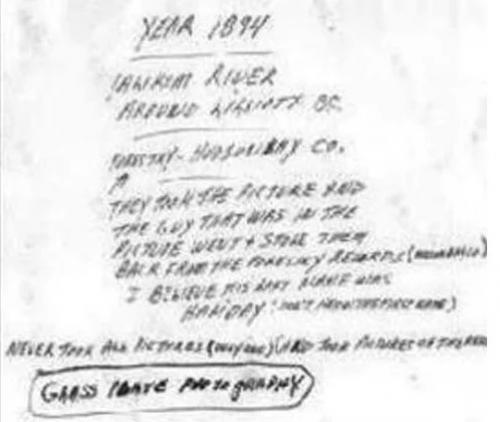 YEAR 1894
RIVER
AROUND LILLIOTT BC.
FORESTRY - HUDSON BAY CO.
A
THEY TOOK THE PICTURE AND
THE GUY THAT WAS IN THE
PICTURE WENT & STOLE THEM
BACK FROM THE FORESTRY RECORDS
I BELIEVE HIS LAST NAME WAS
(DON'T KNOW THE FIRST NAME)
NEVER TOOK ALL PICTURES (ONLY ONE) (AND TOOK PICTURES OF
GLASS PLATE PHOTOGRAPHY